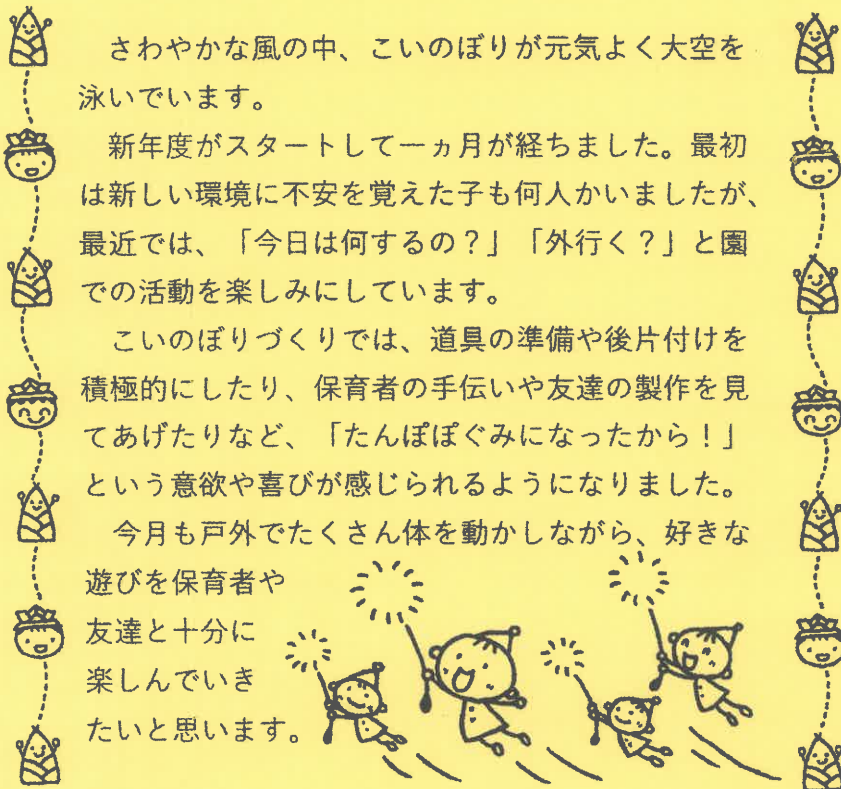 さわやかな風の中、こいのぼりが元気よく大空を
泳いでいます。
新年度がスタートして一ヵ月が経ちました。最初
は新しい環境に不安を覚えた子も何人かいましたが、
最近では、「今日は何するの？」「外行く？」と園
での活動を楽しみにしています。
こいのぼりづくりでは、道具の準備や後片付けを
積極的にしたり、保育者の手伝いや友達の製作を見
てあげたりなど、「たんぽぽぐみになったから！」
という意欲や喜びが感じられるようになりました。
今月も戸外でたくさん体を動かしながら、好きな
遊びを保育者や
友達と十分に
楽しんでいき
たいと思います。